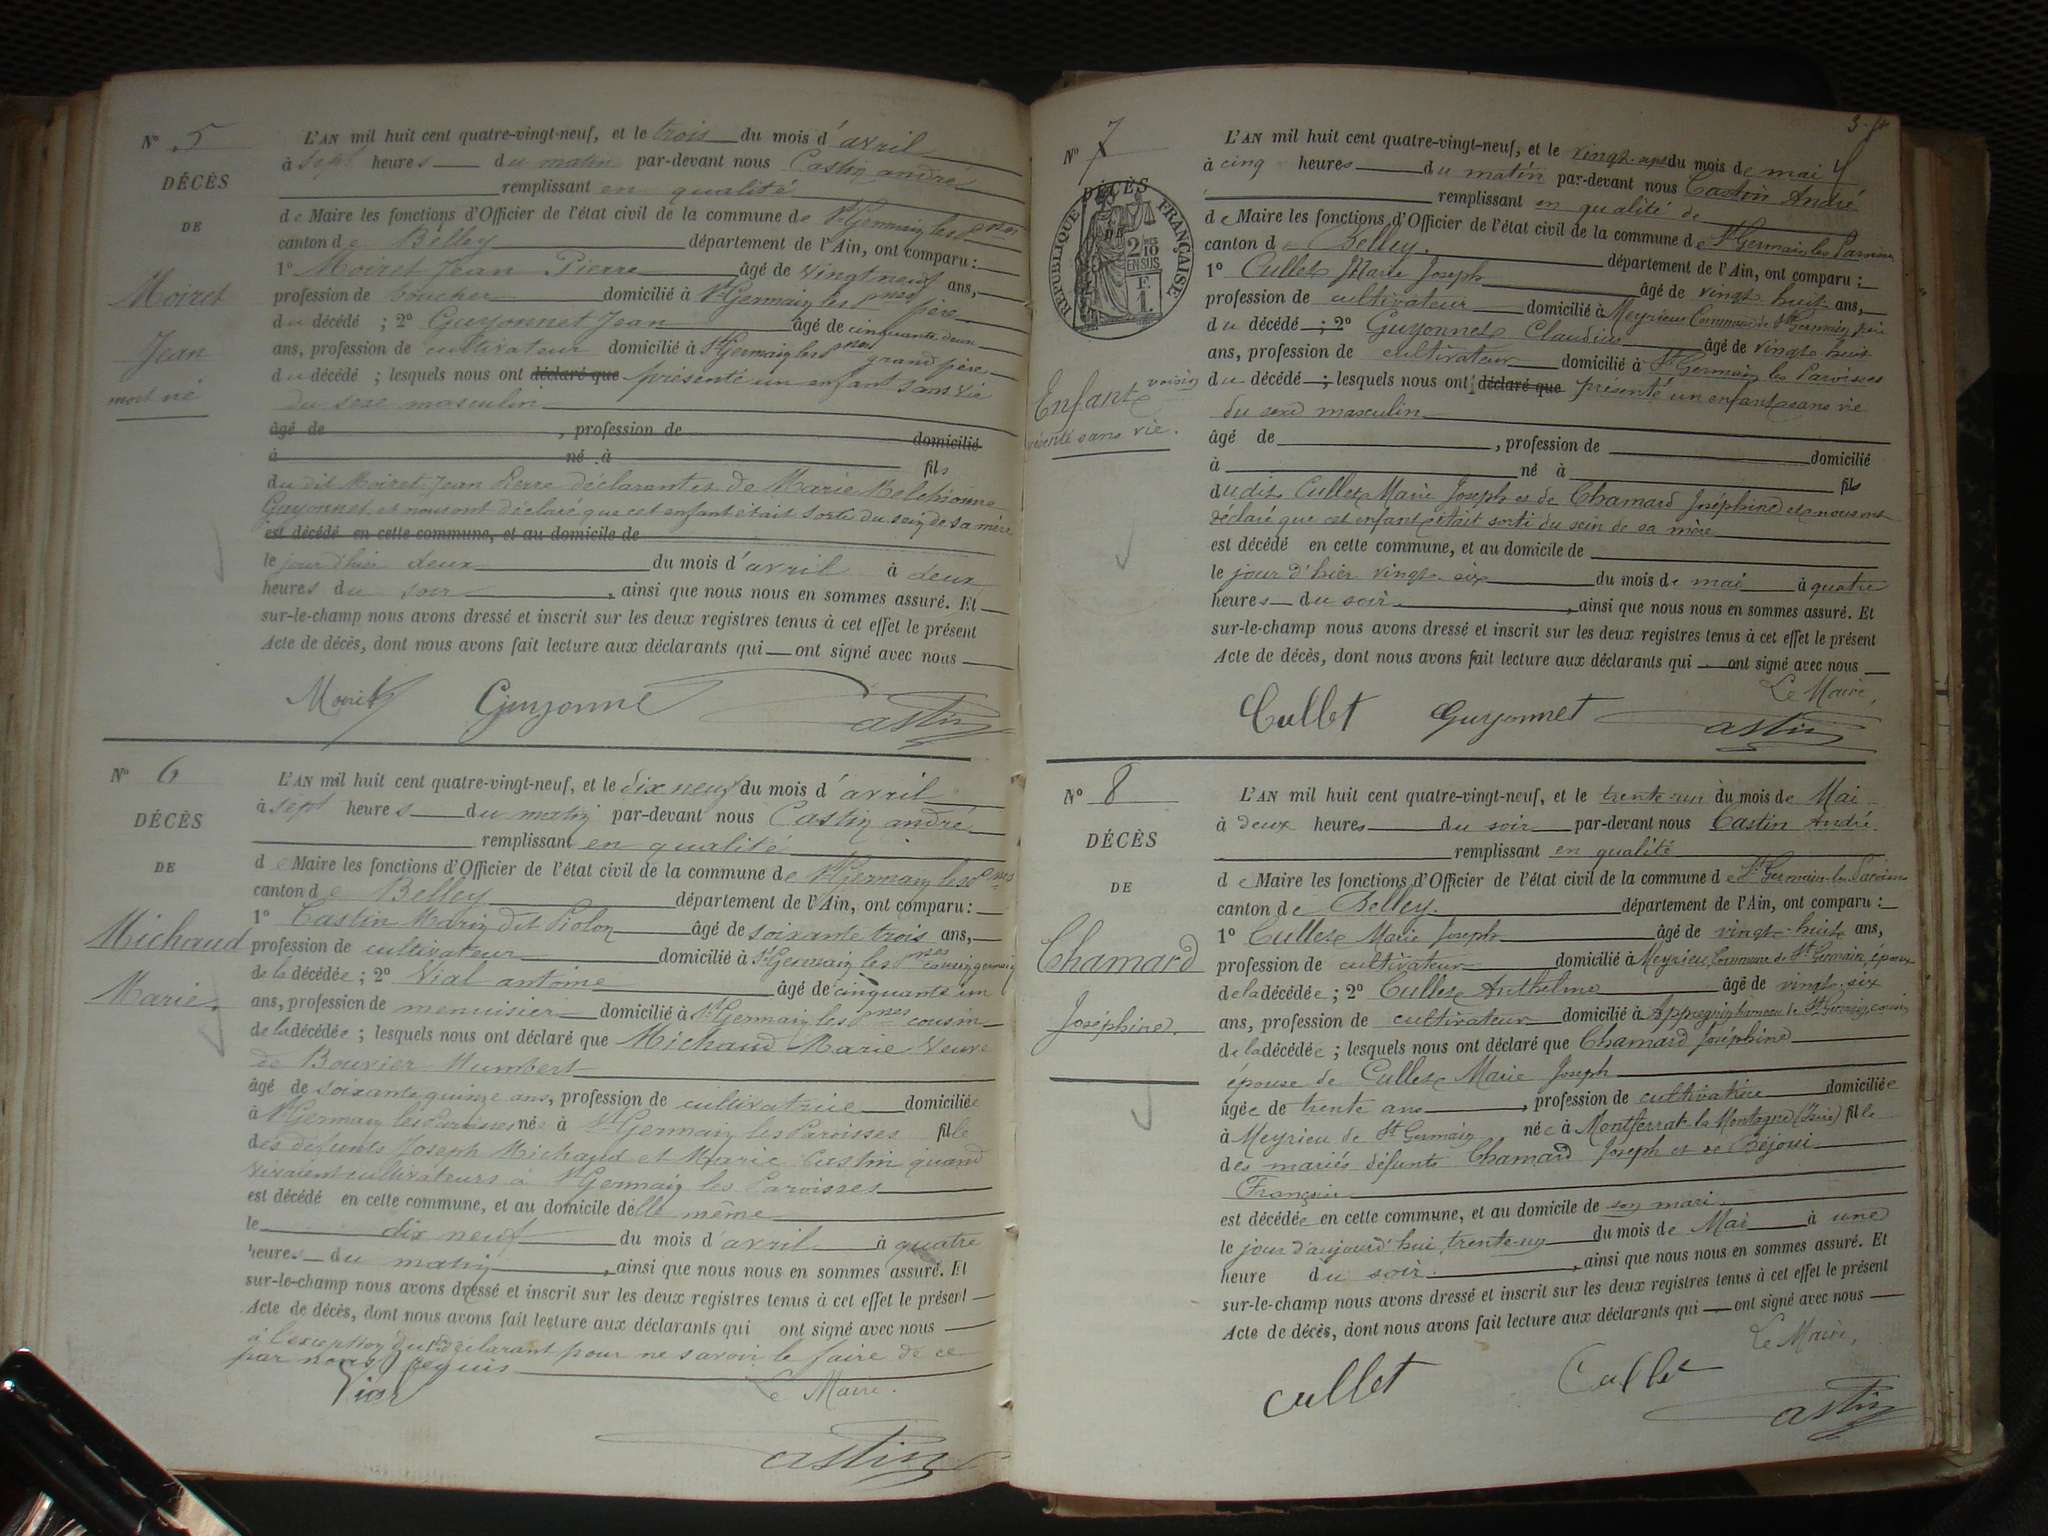 N° 5
DÉCÈS
DE
Moiret
Jean
mort né
L'AN mil huit cent quatre-vingt-neuf, et le trois du mois d'avril
à sept heures du matin par-devant nous Castin andré
remplissant en qualité
de Maire les fonctions d'Officier de l'état civil de la commune de St Germain les Pses
canton de Belley département de l'Ain, ont comparu :
1° Moiret Jean Pierre âgé de vingt neuf ans,
profession de boucher domicilié à St Germain les Pses père
du décédé ; 2° Guyonnet Jean âgé de cinquante deux
ans, profession de cultivateur domicilié à St Germain les Pses grand père
du décédé ; lesquels nous ont déclaré que présenté un enfant sans vie
du sexe masculin
âgé de , profession de domicilié
à né à fils
du dit Moiret Jean Pierre déclarant et de Marie Melchionne
Guyonnet et nous ont déclaré que cet enfant était sorti du sein de sa mère
est décédé en cette commune, et au domicile de
le jour d'hier deux du mois d'avril à deux
heures du soir , ainsi que nous nous en sommes assuré. Et
sur-le-champ nous avons dressé et inscrit sur les deux registres tenus à cet effet le présent
Acte de décès, dont nous avons fait lecture aux déclarants qui ont signé avec nous
Moiret Guyonnet Castin
N° 6
DÉCÈS
DE
Michaud
Marie
L'AN mil huit cent quatre-vingt-neuf, et le dix neuf du mois d'avril
à sept heures du matin par-devant nous Castin andré
remplissant en qualité
de Maire les fonctions d'Officier de l'état civil de la commune de St Germain les Pses
canton de Belley département de l'Ain, ont comparu :
1° Castin Marin dit Piolon âgé de soixante trois ans,
profession de cultivateur domicilié à St Germain les Pses cousin germain
de la décédée ; 2° Vial antoine âgé de cinquante un
ans, profession de menuisier domicilié à St Germain les Pses cousin
de la décédée ; lesquels nous ont déclaré que Michaud Marie veuve
de Bouvier Humbert
âgé de soixante quinze ans, profession de cultivatrice domiciliée
à St Germain les Paroisses née à St Germain les Paroisses fille
des défunts Joseph Michaud et Marie Castin quand
vivaient cultivateurs à St Germain les Paroisses
est décédé en cette commune, et au domicile delle même
le dix neuf du mois d'avril à quatre
heures du matin , ainsi que nous nous en sommes assuré. Et
sur-le-champ nous avons dressé et inscrit sur les deux registres tenus à cet effet le présent
Acte de décès, dont nous avons fait lecture aux déclarants qui ont signé avec nous
à l'exception du 1er déclarant pour ne savoir le faire de ce
par nous requis
Le Maire.
Castin
3
N° 7
RÉPUBLIQUE FRANÇAISE
DÉCÈS
DE
2/10 EN SUS
F. 1.
Enfant
présenté sans vie.
L'AN mil huit cent quatre-vingt-neuf, et le vingt sept du mois de mai
à cinq heures du matin par-devant nous Castin André
remplissant en qualité de
de Maire les fonctions d'Officier de l'état civil de la commune de St Germain les Paroisses
canton de Belley. département de l'Ain, ont comparu :
1° Cullet Marie Joseph âgé de vingt huit ans,
profession de cultivateur domicilié à Meyrieu Commune de St Germain père
du décédé ; 2° Guyonnet Claudius âgé de vingt huit
ans, profession de cultivateur domicilié à St Germain les Paroisses
voisin du décédé ; lesquels nous ont déclaré que présenté un enfant sans vie
du sexe masculin
âgé de , profession de domicilié
à né à fils
dudit Cullet Marie Joseph et de Chamard Joséphine et nous ont
déclaré que cet enfant était sorti du sein de sa mère
est décédé en cette commune, et au domicile de
le jour d'hier vingt six du mois de mai à quatre
heures du soir. , ainsi que nous nous en sommes assuré. Et
sur-le-champ nous avons dressé et inscrit sur les deux registres tenus à cet effet le présent
Acte de décès, dont nous avons fait lecture aux déclarants qui ont signé avec nous
Le Maire,
Cullet Guyonnet Castin
N° 8
DÉCÈS
DE
Chamard
Joséphine.
L'AN mil huit cent quatre-vingt-neuf, et le trente-un du mois de Mai
à deux heures du soir par-devant nous Castin André
remplissant en qualité
de Maire les fonctions d'Officier de l'état civil de la commune de St Germain les Paroisses
canton de Belley. département de l'Ain, ont comparu :
1° Cullet Marie Joseph âgé de vingt-huit ans,
profession de cultivateur domicilié à Meyrieu Commune de St Germain, époux
de la décédée ; 2° Cullet Anthelme âgé de vingt-six
ans, profession de cultivateur domicilié à Appregnin hameau de St Germain cousin
de la décédée ; lesquels nous ont déclaré que Chamard Joséphine
épouse de Cullet Marie Joseph
âgée de trente ans , profession de cultivatrice domiciliée
à Meyrieu de St Germain née à Montferrat la Montagne (Isère) fille
des mariés défunts Chamard Joseph et de Béjoui
Françoise
est décédée en cette commune, et au domicile de son mari
le jour d'aujourd'hui, trente-un du mois de Mai à une
heure du soir , ainsi que nous nous en sommes assuré. Et
sur-le-champ nous avons dressé et inscrit sur les deux registres tenus à cet effet le présent
Acte de décès, dont nous avons fait lecture aux déclarants qui ont signé avec nous
Le Maire,
Cullet Cullet Castin